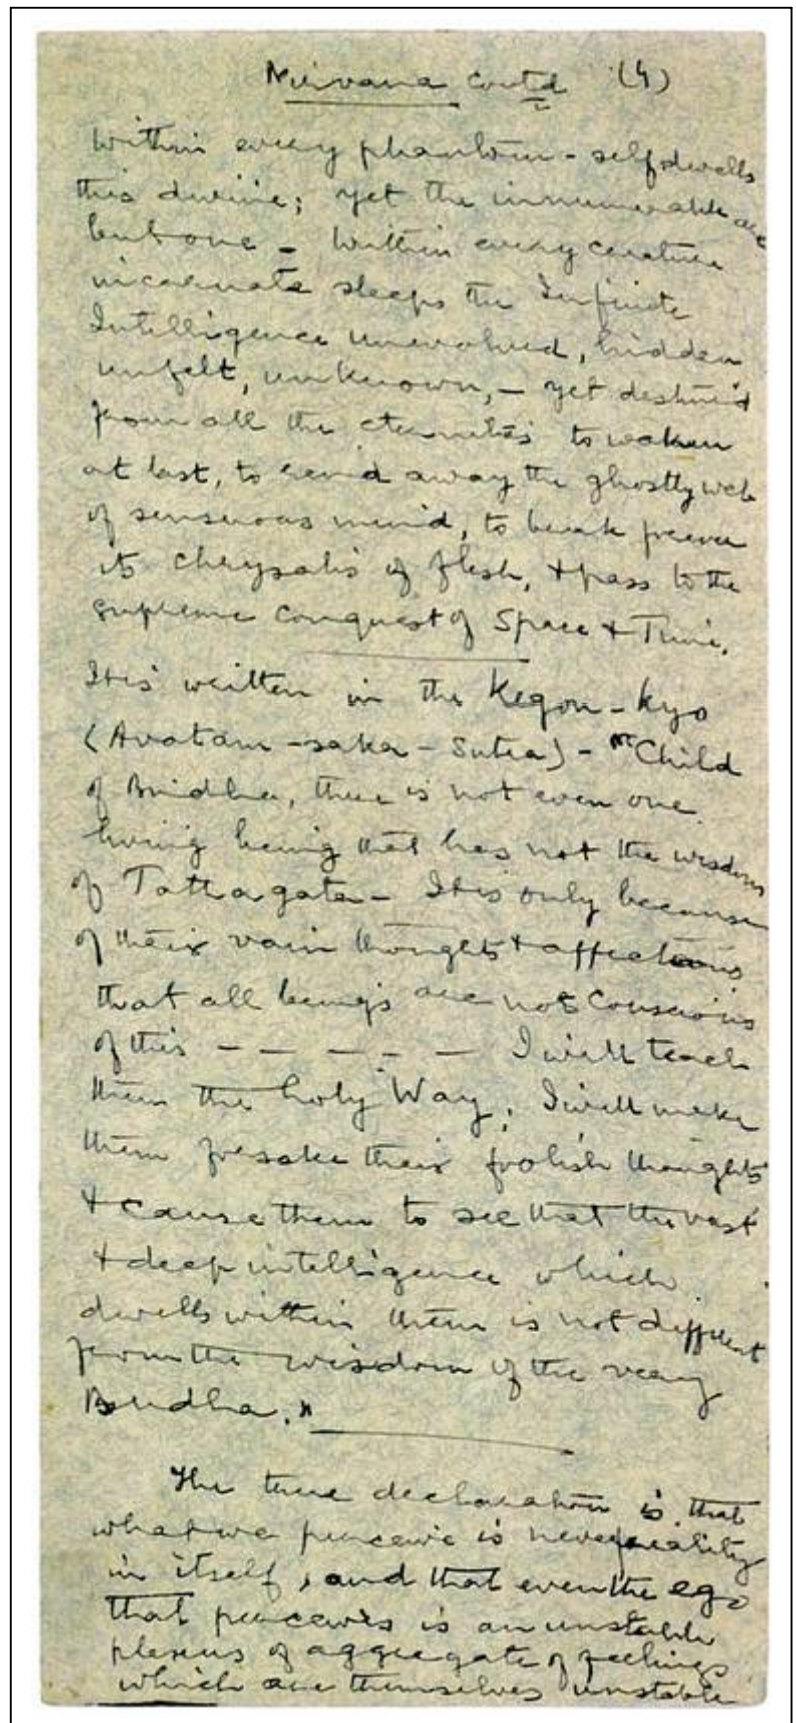 Nirvana Contd (4)
Within every phantom - self dwells
this divine; yet the innumerable are
but one - Within every creature
incarnate sleeps the Infinite
Intelligence unevolved, hidden
unfelt, unknown, - yet destined
from all the eternities to waken
at last, to rend away the ghostly web
of sensuous mind, to break forever
its chrysalis of flesh, & pass to the
supreme conquest of Space & Time.
It is written in the Kegon-kyo
(Avatam-saka-Sutra) - "Child
of Buddha, there is not even one
living being that has not the wisdom
of Tathagata - It is only because
of their vain thoughts & affections
that all beings are not conscious
of this - - - - - I will teach
them the holy Way; I will make
them forsake their foolish thoughts
& cause them to see that the vast
& deep intelligence which
dwells within them is not different
from the wisdom of the very
Buddha."
The true declaration is that
what we perceive is never reality
in itself, and that even the ego
that perceives is an unstable
plexus of aggregate of feelings
which are themselves unstable